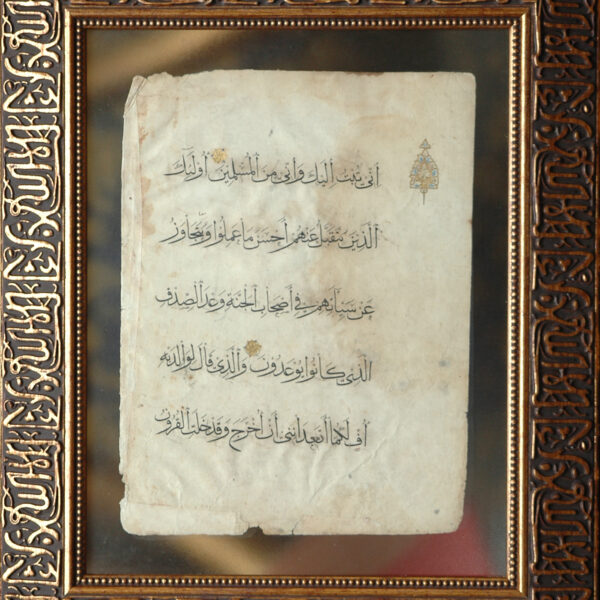 اني تبت اليك واني من المسلمين اوليك
الذين يتقبل عنهم احسن ما عملوا ويتجاوز
عن سياتهم في اصحاب الجنة وعد الصدق
الذي كانوا يوعدون والذي قال لوالديه
اف لكما اتعدانني ان اخرج وقد خلت القرون